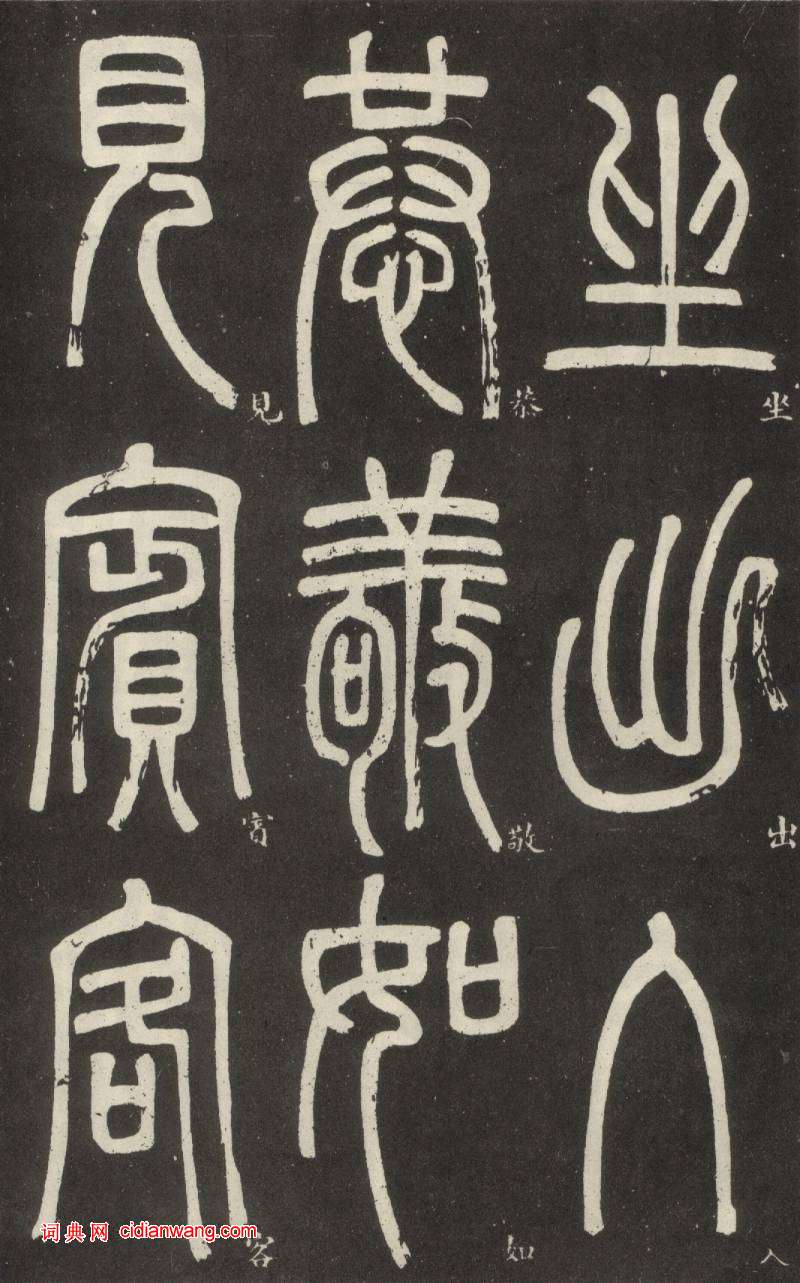 坐出入
恭敬如
見賓客
坐
出
入
恭
敬
如
見
賓
客
词典网 cidianwang.com